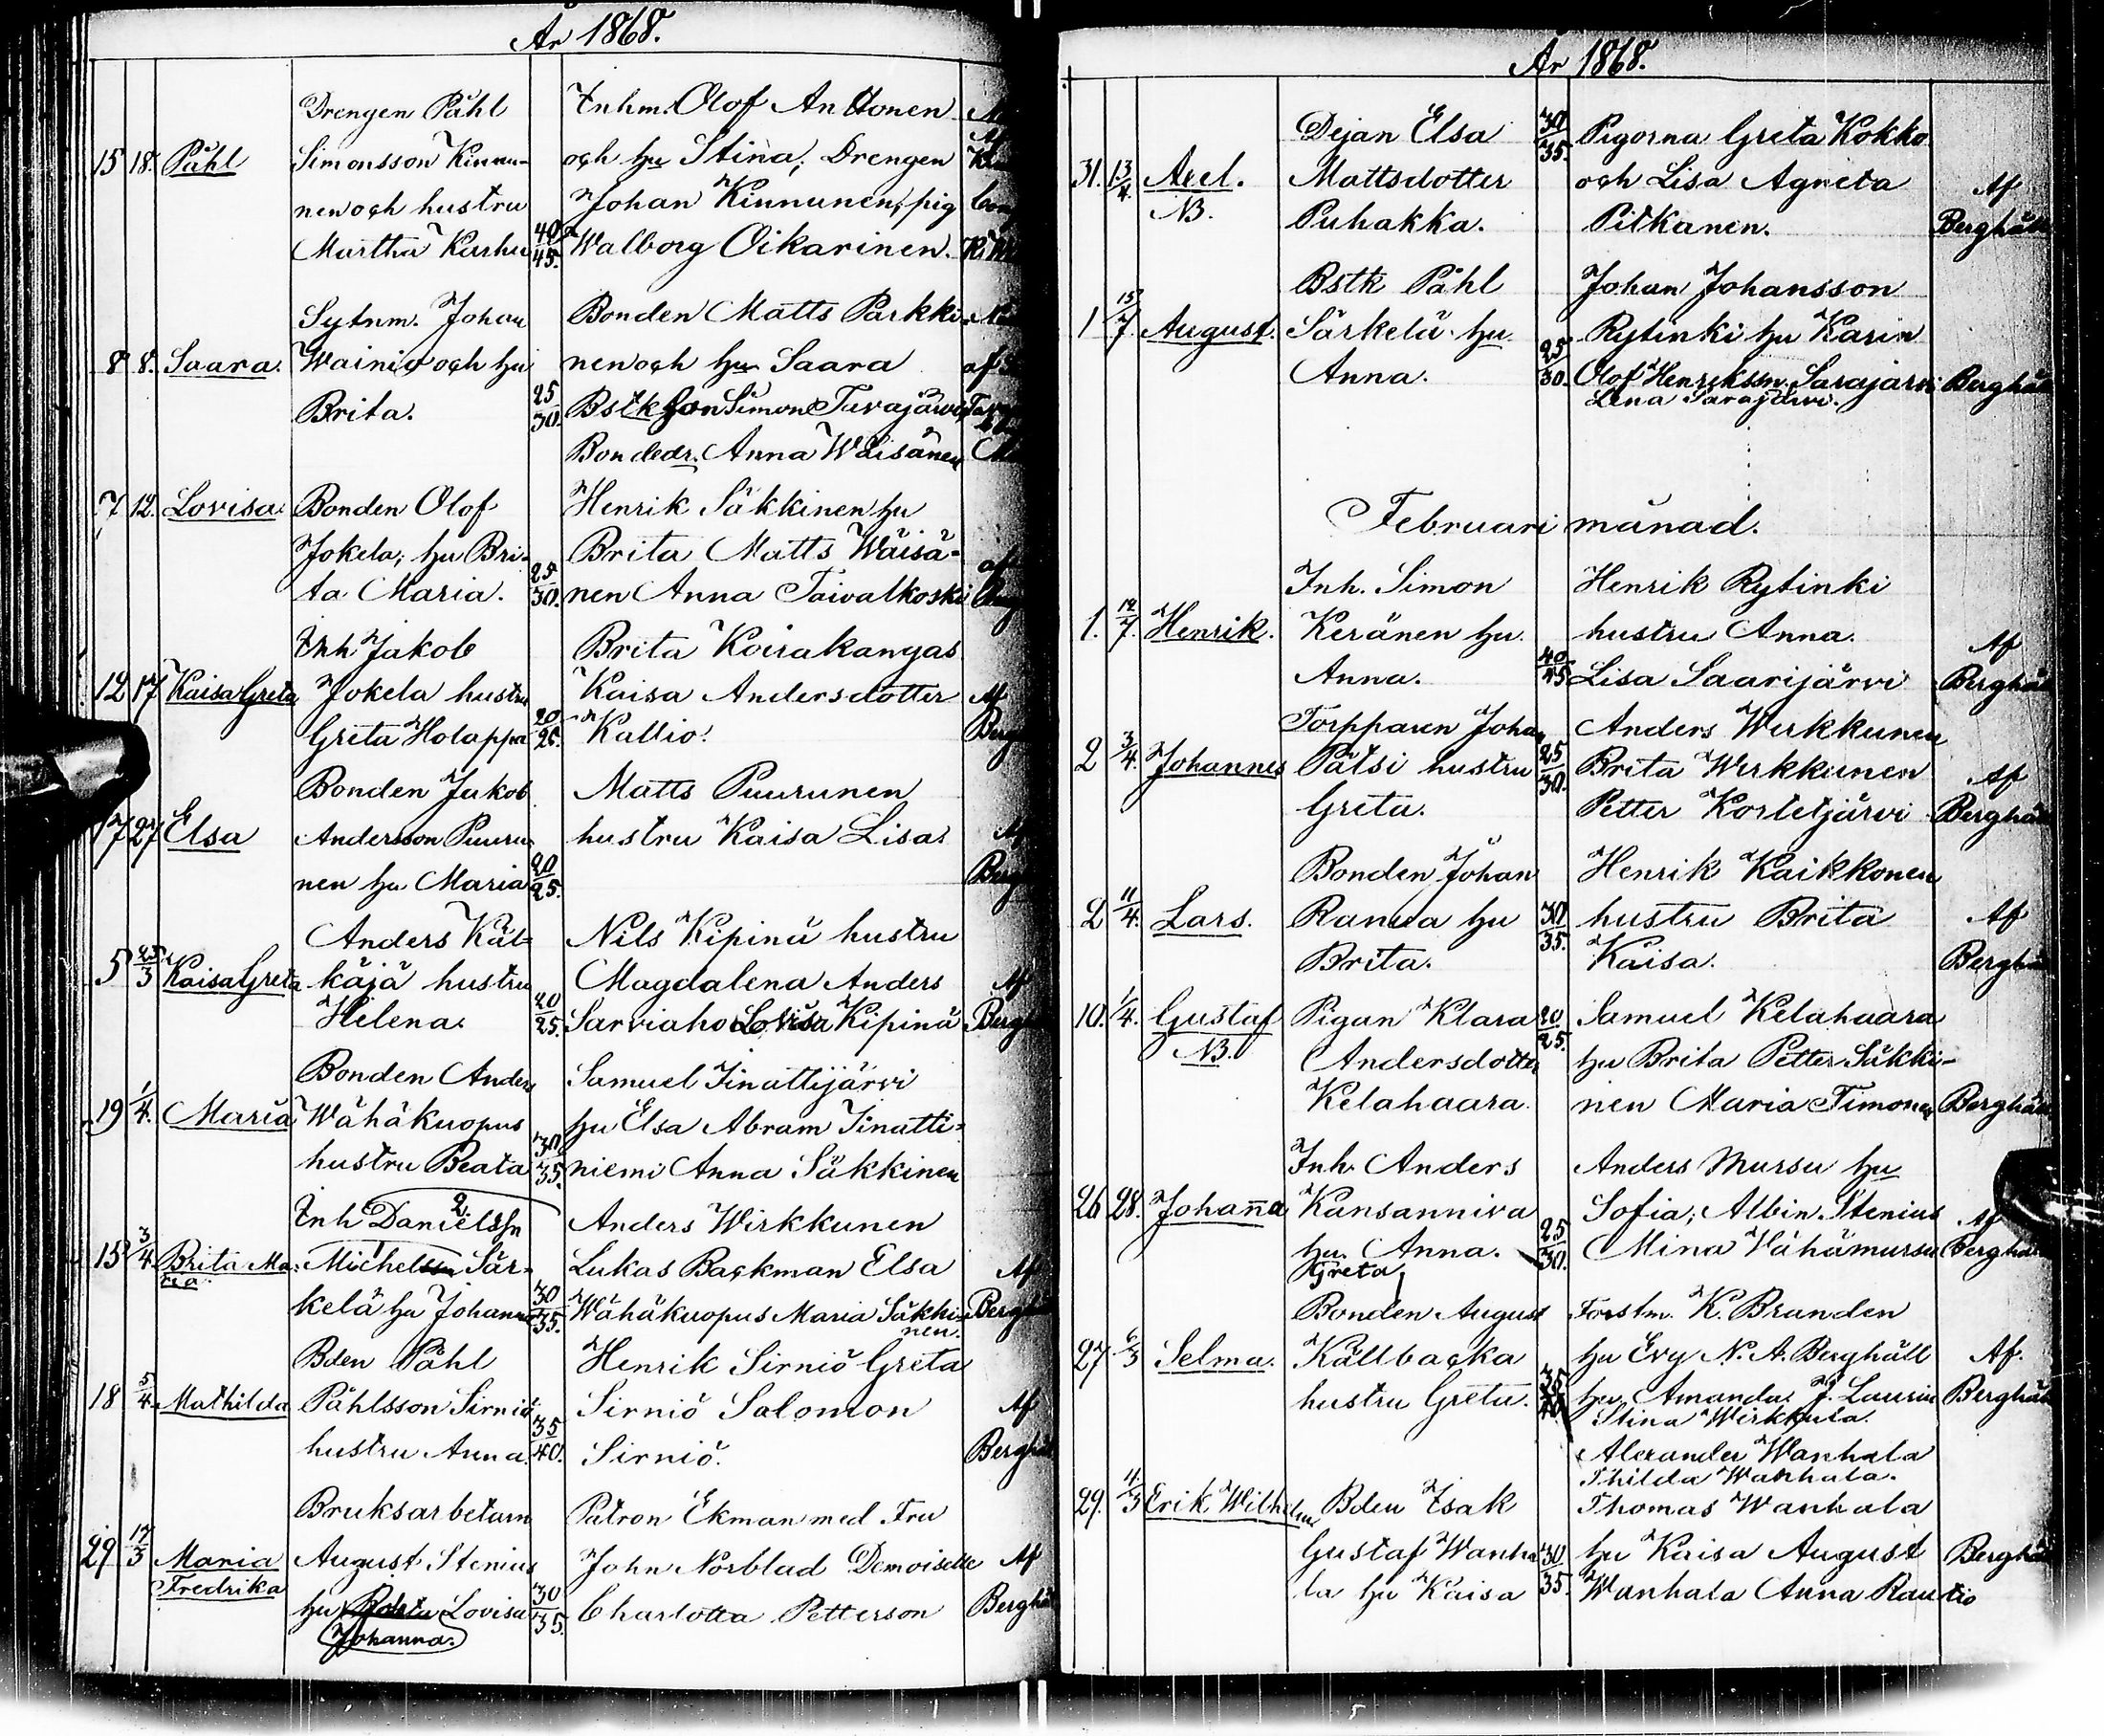 År 1868.
Drengen Påhl Inhm. Olof Anttonen
15 18. Påhl Simonsson Kinnu- och hu Stina, Drengen
nen och hustru Johan Kinnunen, pig
Martha Karhu 40/45. Walborg Oikarinen.
Sytnm. Johan Bonden Matts Parkki-
8 8. Saara. Wainio och hu nen och hu Saara af
Brita. 25/30. Bstk Son Simon Tuvajärvi,
Bondedr. Anna Wäisänen
7 12. Lovisa Bonden Olof Henrik Säkkinen hu
Jokela, hu Bri- Brita Matts Wäisä- af
ta Maria. 25/30. nen Anna Taivalkoski
Inh Jakob Brita Koirakangas
12 17 Kaisa Greta Jokela hustru Kaisa Andersdotter Af
Greta Holappa 20/25. Kallio. Berg
Bonden Jakob Matts Puurunen
17 27 Elsa Andersson Puuru- hustru Kaisa Lisa Af
nen hu Maria 20/25. Berg
Anders Käl- Nils Kipinä hustru
5 25/3 Kaisa Greta käjä hustru Magdalena Anders Af
Helena. 20/25. Sarviaho Lovisa Kipinä Bergh
Bonden Anders Samuel Jinattijärvi
19 1/4. Maria Wähäkuopus hu Elsa Abram Jinatti-
hustru Beata 30/35. niemi Anna Säkkinen
Inh Danielssn 2 Anders Wirkkunen
15 3/4 Brita Ma- Michelssn 1 Sär- Lukas Backman Elsa Af
ria.
kelä hu Johanna 30/35. Wähäkuopus Maria Säkki- Berghä
nen.
Bden Påhl Henrik Sirniö Greta
18 5/4. Mathilda Påhlsson Sirniö Sirniö Salomon Af
hustru Anna. 35/40. Sirniö. Berghä
Bruksarbetarn Patron Ekman med Fru
29 17/3 Maria August Stenius John Norblad Demoiselle Af
Fredrika
hu Lovisa 30/35. Charlotta Petterson Berghä
Johanna.
År 1868.
Dejan Elsa 30/35. Pigorna Greta Kokko
31. 13/4. Axel. Mattsdotter och Lisa Agneta Af
NB. Puhakka. Pitkanen. Berghäll
Bstk Påhl Johan Johansson
1 15/7 August. Särkelä hu Rytinki hu Karin
Anna. 25/30. Olof Henrikssn. Sarajärvi Berghäl
Lena Sarajärvi.
Februari månad.
Inh. Simon Henrik Rytinki
1. 12/7. Henrik. Keränen hu hustru Anna. Af
Anna. 40/45 Lisa Saarijärvi Berghäl
Torpparen Johan Anders Werkkunen
2 3/4. Johannes Pätsi hustru 25/30. Brita Werkkunen Af
Greta. Petter Kortetjärvi Berghäl
Bonden Johan Henrik Kaikkonen
2 11/4. Lars. Ranua hu 30/35. hustru Brita Af
Brita. Kaisa. Berghä
10. 1/4. Gustaf Pigan Klara 20/25. Samuel Kelahaara
NB. Andersdotter hu Brita Petter Säkki-
Kelahaara. nen Maria Timonen Berghäl
Inh. Anders Anders Mursu hu
26 28. Johanna Kansanniva Sofia, Albin Stenius Af
hu Anna. 25/30. Mina Vähämursu Berghäl
Greta
Bonden August Forstm. K. Branden
27 6/3 Selma. Källbacka hu Evy N. A. Berghäll Af.
hustru Greta. 35/40 hu Amanda. J. Laurin Berghäl
Stina Wirkkula.
Alexander Wanhala
Thilda Wanhala.
29. 4/3 Erik Wilhelm Bden Isak Thomas Wanhala
Gustaf Wanha- 30/35. hu Kaisa August Berghäl
la hu Kaisa Wanhala Anna Rautio